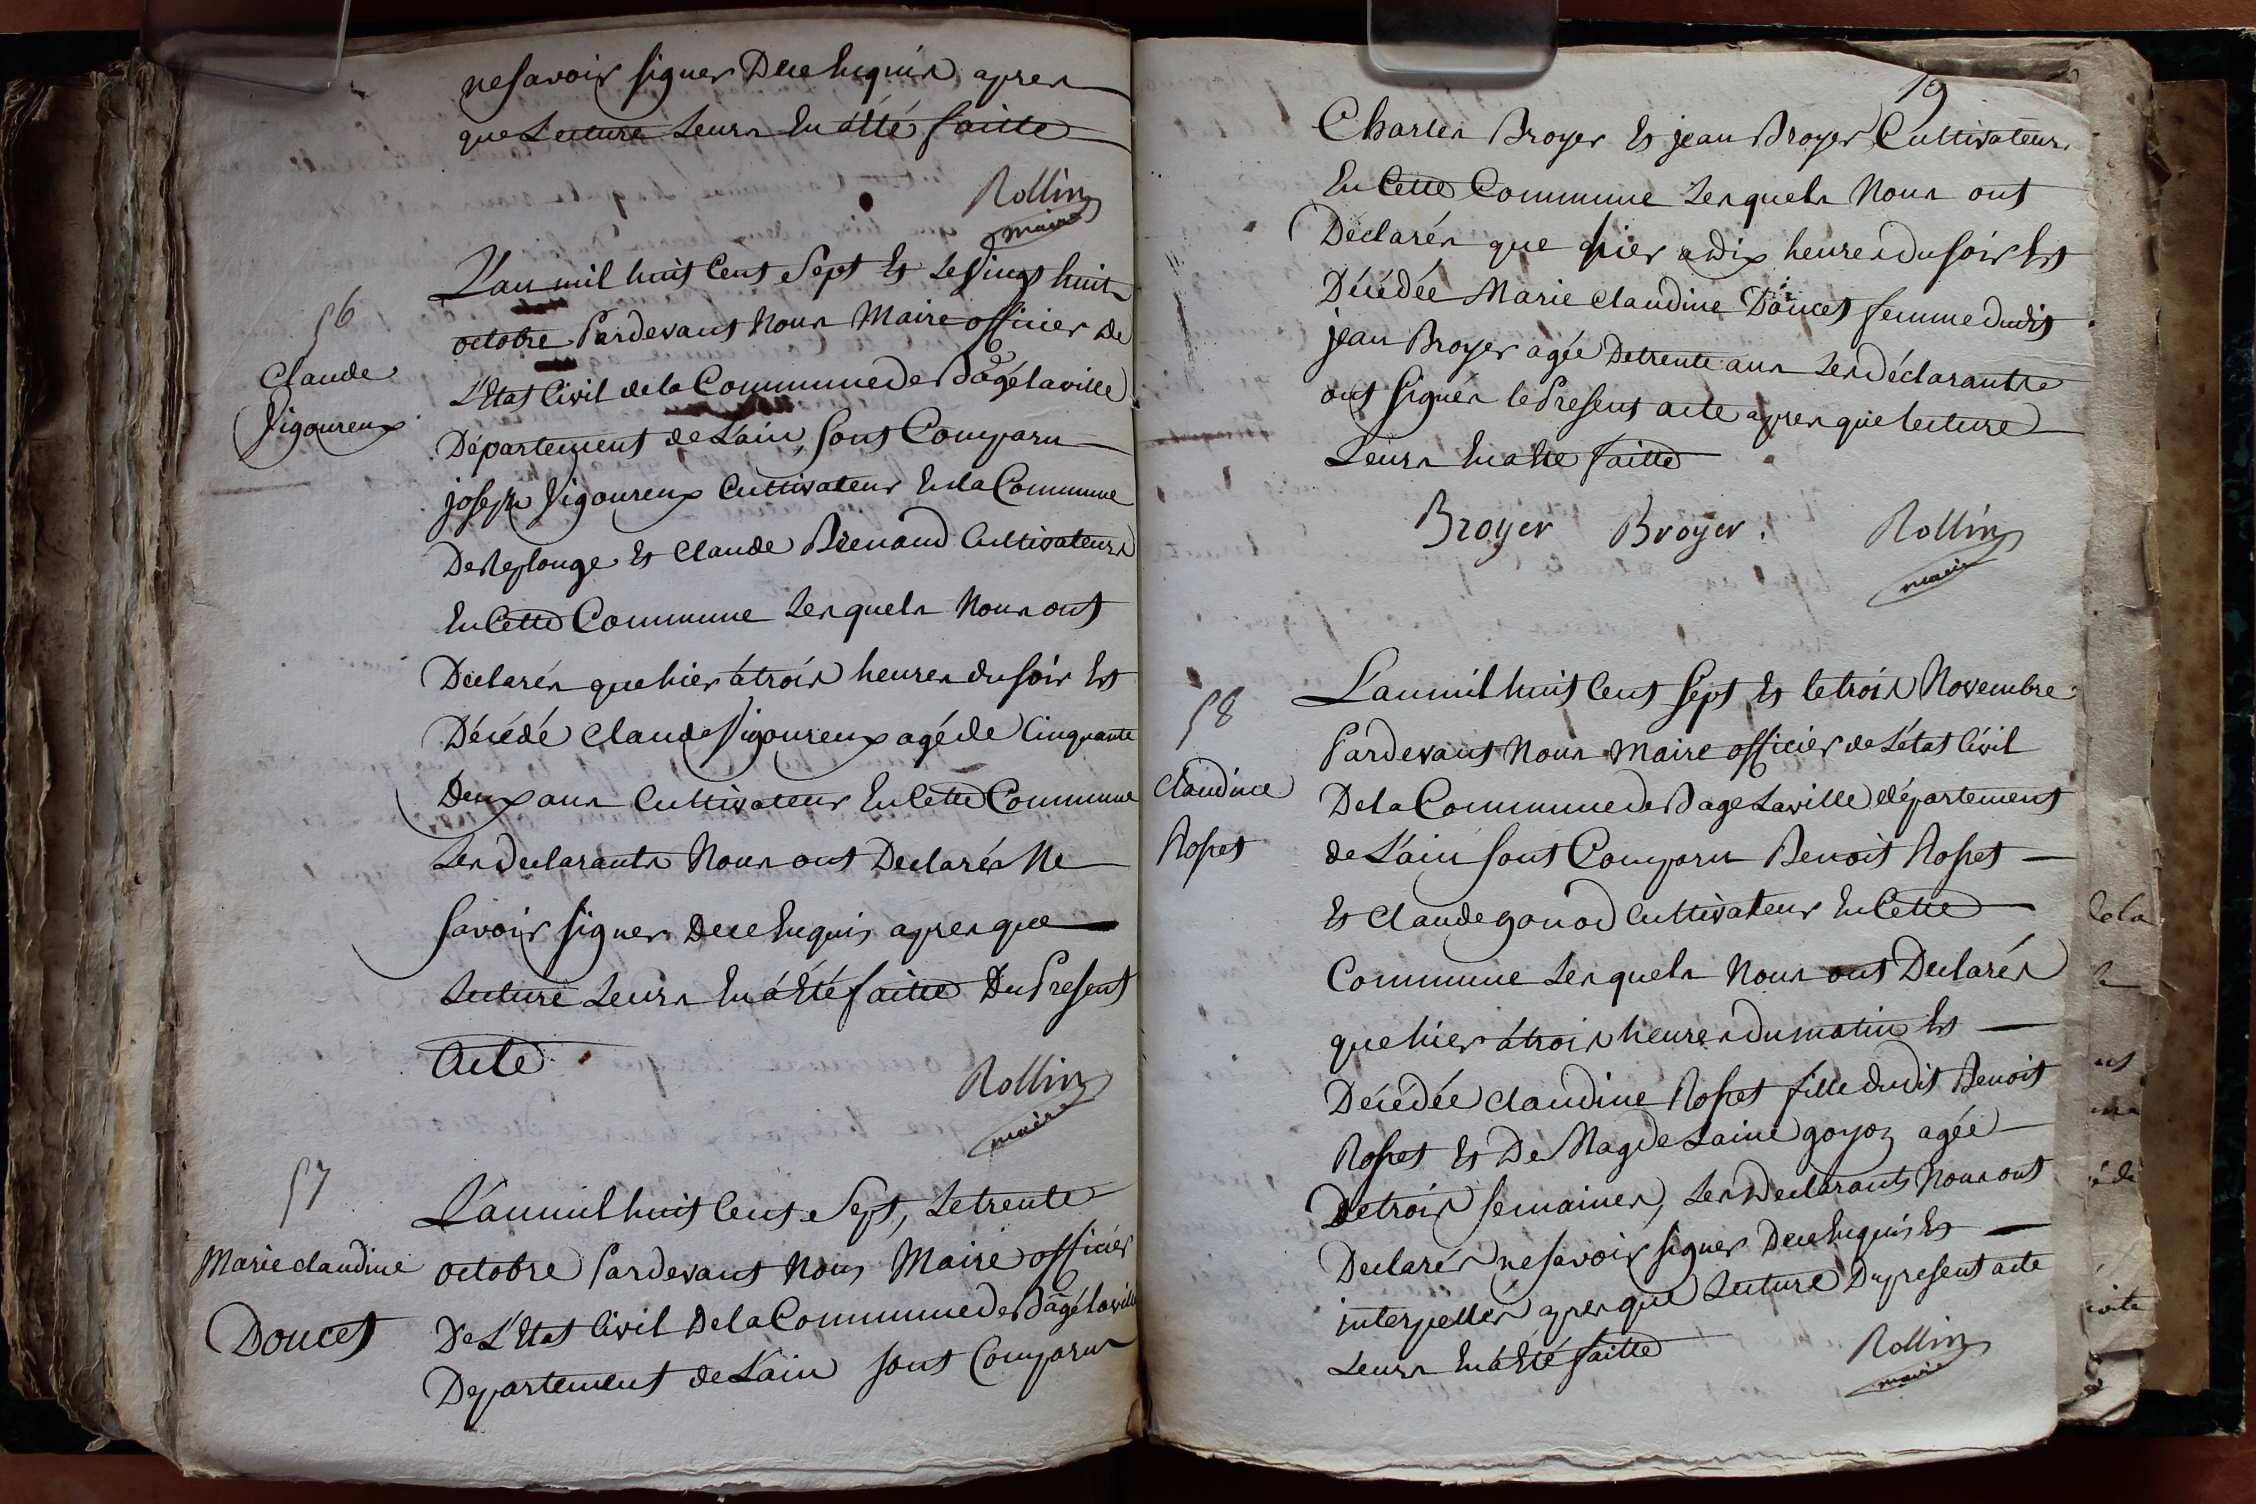 ne savoir signer De ce Enquis apres
que Lecture Leurs En a été faitte
Rollin
maire
56
Claude
Vigoureux
L'an mil huit Cent Sept Et Le Vingt huit
octobre Pardevant Nous Maire officier De
L'Etat Civil de la Commune de Bagé laville
Département de L'ain, sont Comparu
joseph Vigoureux Cultivateur En la Commune
De Replonge Et Claude Renaud Cultivateurs
En Cette Commune Lesquels Nous ont
Déclarés que hier à trois heures du soir Est
Décédé Claude Vigoureux agé de Cinquante
Deux ans Cultivateur En Cette Commune
Les declarants Nous ont Declarés Ne
savoir signer De ce Enquis apres que
Lecture Leurs En a Eté faitte Du Present
Acte
Rollin
maire
57
Marie claudine
Doucet
L'an mil huit Cent Sept, Le trente
octobre Pardevant Nous Maire officier
De L'Etat Civil De la Commune de Bagé laville
Departement de L'ain sont Comparus
19
Charles Broyer Et jean Broyer Cultivateurs
En Cette Commune Lesquels Nous ont
Déclarés que hier a dix heures du soir Est
Décédée Marie Claudine Doucet femme dudit
jean Broyer agée De trente ans Les déclarants
ont signés le Present acte apres que lecture
Leurs En a Eté faitte
Broyer Broyer. Rollin
maire
58
Claudine
Rosset
L'an mil huit Cent Sept Et le trois Novembre
Pardevant Nous Maire officier de L'état Civil
De la Commune de Bage Laville département
de L'ain sont Comparu Benoit Rosset
Et Claude gonod Cultivateur En Cette
Commune Lesquels Nous ont Declarés
que hier à trois heures du matin Est
Décédée Claudine Rosset fille dudit Benoit
Rosset Et De Magdelaine goyon agée
De trois semaines, Les Declarants Nous ont
Declarés ne savoir signer De ce Enquis Et
interpellés apres que Lecture Du present acte
Leurs En à Eté faitte
Rollin
maire